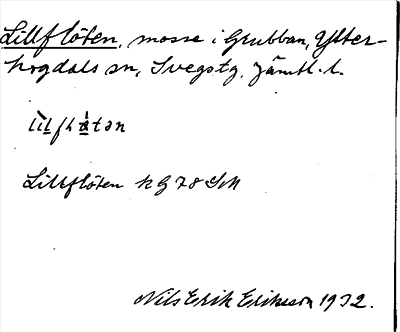 Lillflöten, mosse i Grubban, Ytter-
hogdals sn, Svegs tg, Jämtl. l.
Lillflöten h G 78 SM
Nils Erik Eriksson 1932.